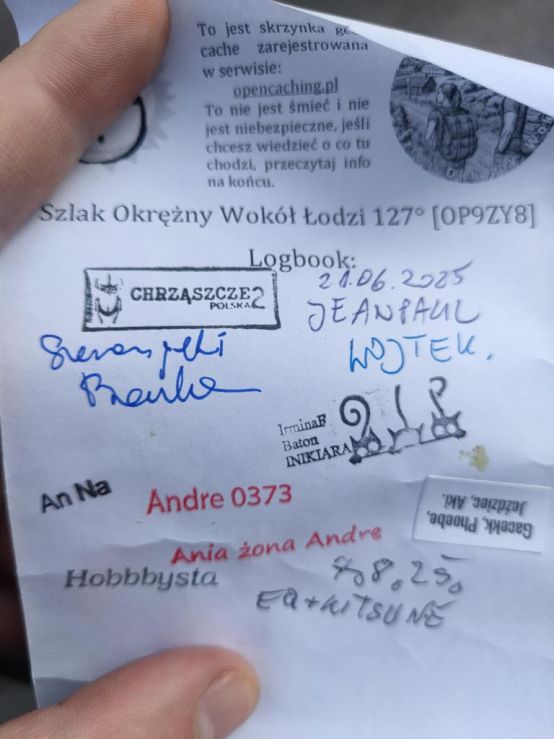 To jest skrzynka
cache zarejestrowana
w serwisie:
opencaching.pl
To nie jest śmieć i nie
jest niebezpieczne, jeśli
chcesz wiedzieć o co tu
chodzi, przeczytaj info
na końcu.
Szlak Okrężny Wokół Łodzi 127° [OP9ZY8]
Logbook:
CHRZĄSZCZE 2
POLSKA
21.06.2025
JEANPAUL
WOJTEK.
IrminaF
Baton
INIKIARA
An Na
Andre 0373
Gacekk, Phoebe,
Jeździec, Aki.
Ania żona Andre
Hobbbysta
8.25.
EQ+KITSUNE